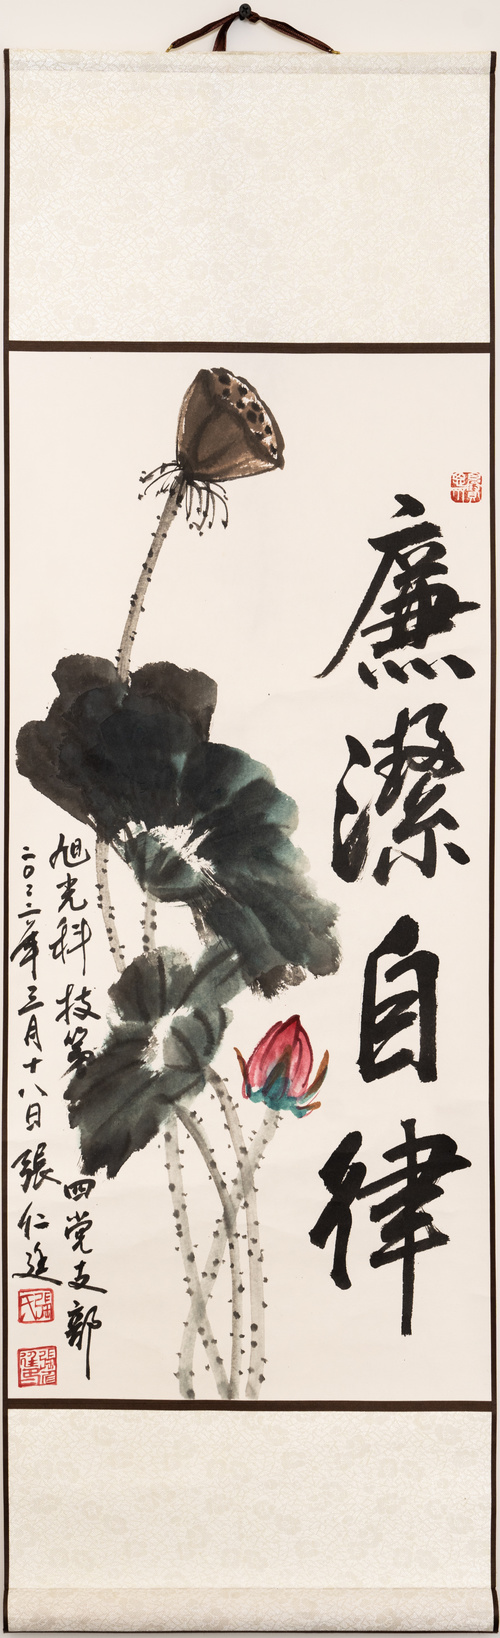 廉潔自律
旭光科技第四党支部
二〇二二年三月十八日 張仁廷